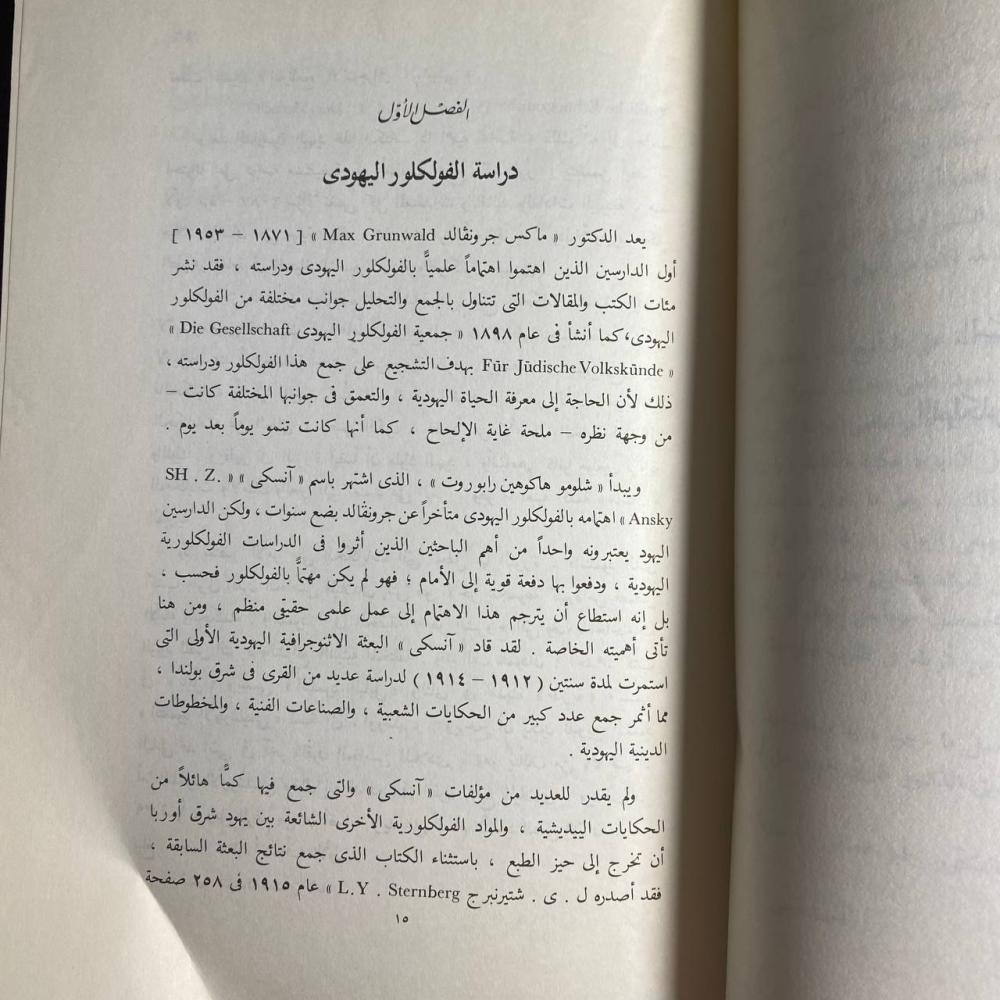 الفصل الأول
دراسة الفولكلور اليهودى
يعد الدكتور « ماكس جرونڤالد Max Grunwald » [ ١٨٧١ – ١٩٥٣ ]
أول الدارسين الذين اهتموا اهتماماً علمياًّ بالفولكلور اليهودى ودراسته ، فقد نشر
مئات الكتب والمقالات التى تتناول بالجمع والتحليل جوانب مختلفة من الفولكلور
اليهودى، كما أنشأ فى عام ١٨٩٨ « جمعية الفولكلور اليهودى Die Gesellschaft »
« Für Jüdische Volkskünde بهدف التشجيع على جمع هذا الفولكلور ودراسته ،
ذلك لأن الحاجة إلى معرفة الحياة اليهودية ، والتعمق فى جوانبها المختلفة كانت –
من وجهة نظره – ملحة غاية الإلحاح ، كما أنها كانت تنمو يوماً بعد يوم .
ويبدأ « شلومو هاكوهين رابوروت » ، الذى اشتهر باسم « آنسكى » « SH . Z.
Ansky » اهتمامه بالفولكلور اليهودى متأخراً عن جرونڤالد بضع سنوات ، ولكن الدارسين
اليهود يعتبرونه واحداً من أهم الباحثين الذين أثروا فى الدراسات الفولكلورية
اليهودية ، ودفعوا بها دفعة قوية إلى الأمام ؛ فهو لم يكن مهتماًّ بالفولكلور فحسب ،
بل إنه استطاع أن يترجم هذا الاهتمام إلى عمل علمى حقيقى منظم ، ومن هنا
تأتى أهميته الخاصة . لقد قاد « آنسكى » البعثة الاثنوجرافية اليهودية الأولى التى
استمرت لمدة سنتين ( ١٩١٢ – ١٩١٤ ) لدراسة عديد من القرى فى شرق بولندا ،
مما أثمر جمع عدد كبير من الحكايات الشعبية ، والصناعات الفنية ، والمخطوطات
الدينية اليهودية .
ولم يقدر للعديد من مؤلفات « آنسكى » والتى جمع فيها كمًّا هائلاً من
الحكايات الييديشية ، والمواد الفولكلورية الأخرى الشائعة بين يهود شرق أوربا
أن تخرج إلى حيز الطبع ، باستثناء الكتاب الذى جمع نتائج البعثة السابقة ،
فقد أصدره ل . ى . شتيرنبرج L.Y . Sternberg » عام ١٩١٥ فى ٢٥٨ صفحة
١٥